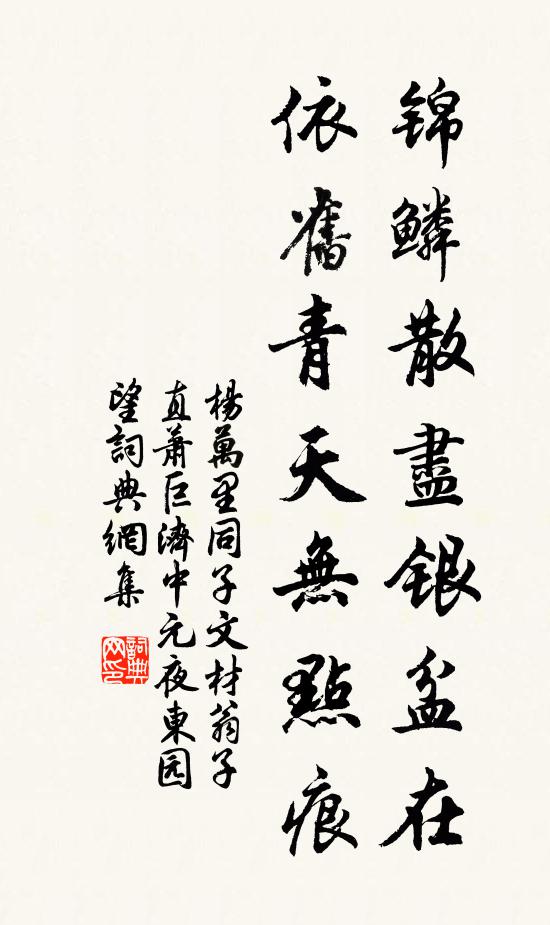 锦鳞散盡银盆在
依舊青天無點痕
楊萬里同子文材翁子
直萧巨濟中元夜東园
望詞典網集
詞典
网印